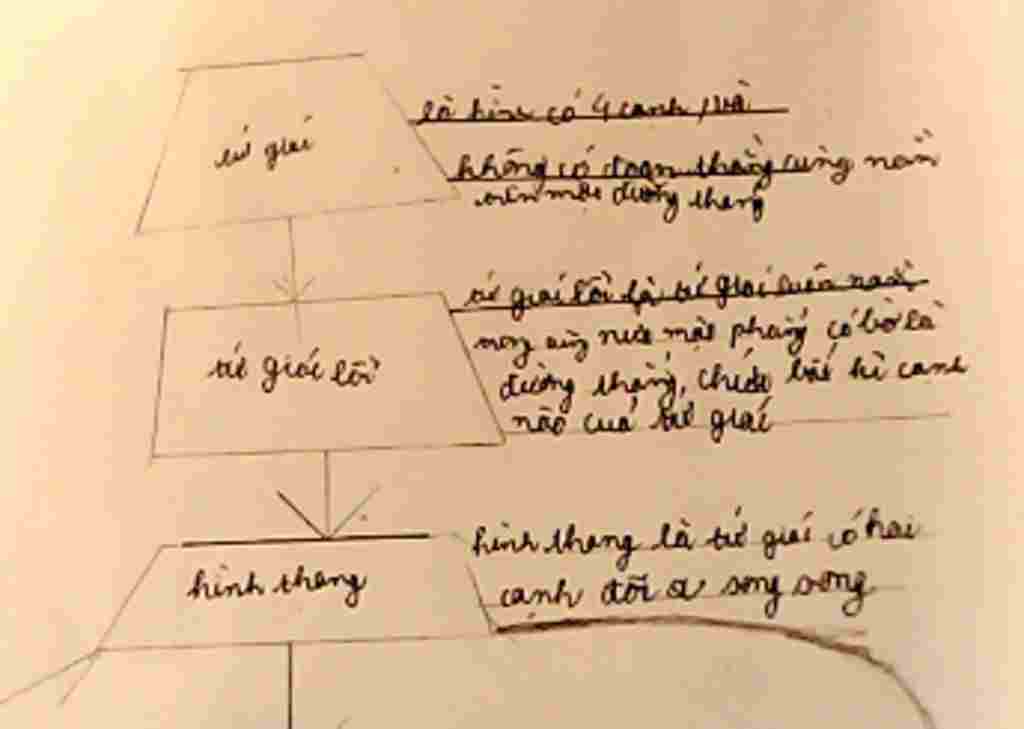 tứ giác
là hình có 4 cạnh, và
không có đoạn thẳng cùng nằm
trên một đường thẳng
tứ giác lồi
tứ giác lồi là tứ giác luôn nằm
trong cùng nửa mặt phẳng có bờ là
đường thẳng, chứa bất kì cạnh
nào của tứ giác
hình thang
hình thang là tứ giác có hai
cạnh đối song song